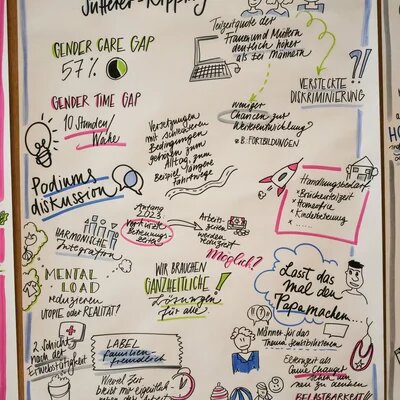 Jutterer-Kipping
GENDER CARE GAP
57%
Teilzeitquote der
Frauen und Müttern
deutlich höher
als bei Männern
VERSTECKTE
DISKRIMINIERUNG
GENDER TIME GAP
10 Stunden/
Woche
weniger
Chancen zur
Weiterentwicklung
z.B. FORTBILDUNGEN
Versetzungen
mit schlechteren
Bedingungen
gehören zum
Alltag, zum
Beispiel längere
Fahrtwege
Podiums
diskussion
Handlungsbedarf
Brückenteilzeit
Homeoffice
Kinderbetreuung
Anfang
2023
Arbeits-
zeiten
werden
reduziert
möglich?
HARMONISCHE
Integration
MENTAL
LOAD
reduzieren
UTOPIE oder REALITÄT?
WIR BRAUCHEN
GANZHEITLICHE
Lösungen
für alle!
Lasst das
mal den
Papa machen...
2. Schicht
nach der
Erwerbstätigkeit
LABEL
familien-
freundlich
Männer für das
Thema sensibilisieren
Wieviel Zeit
bleibt mir eigentlich
Elternzeit als
Chance
neu zu denken
BELASTBARKEIT!!